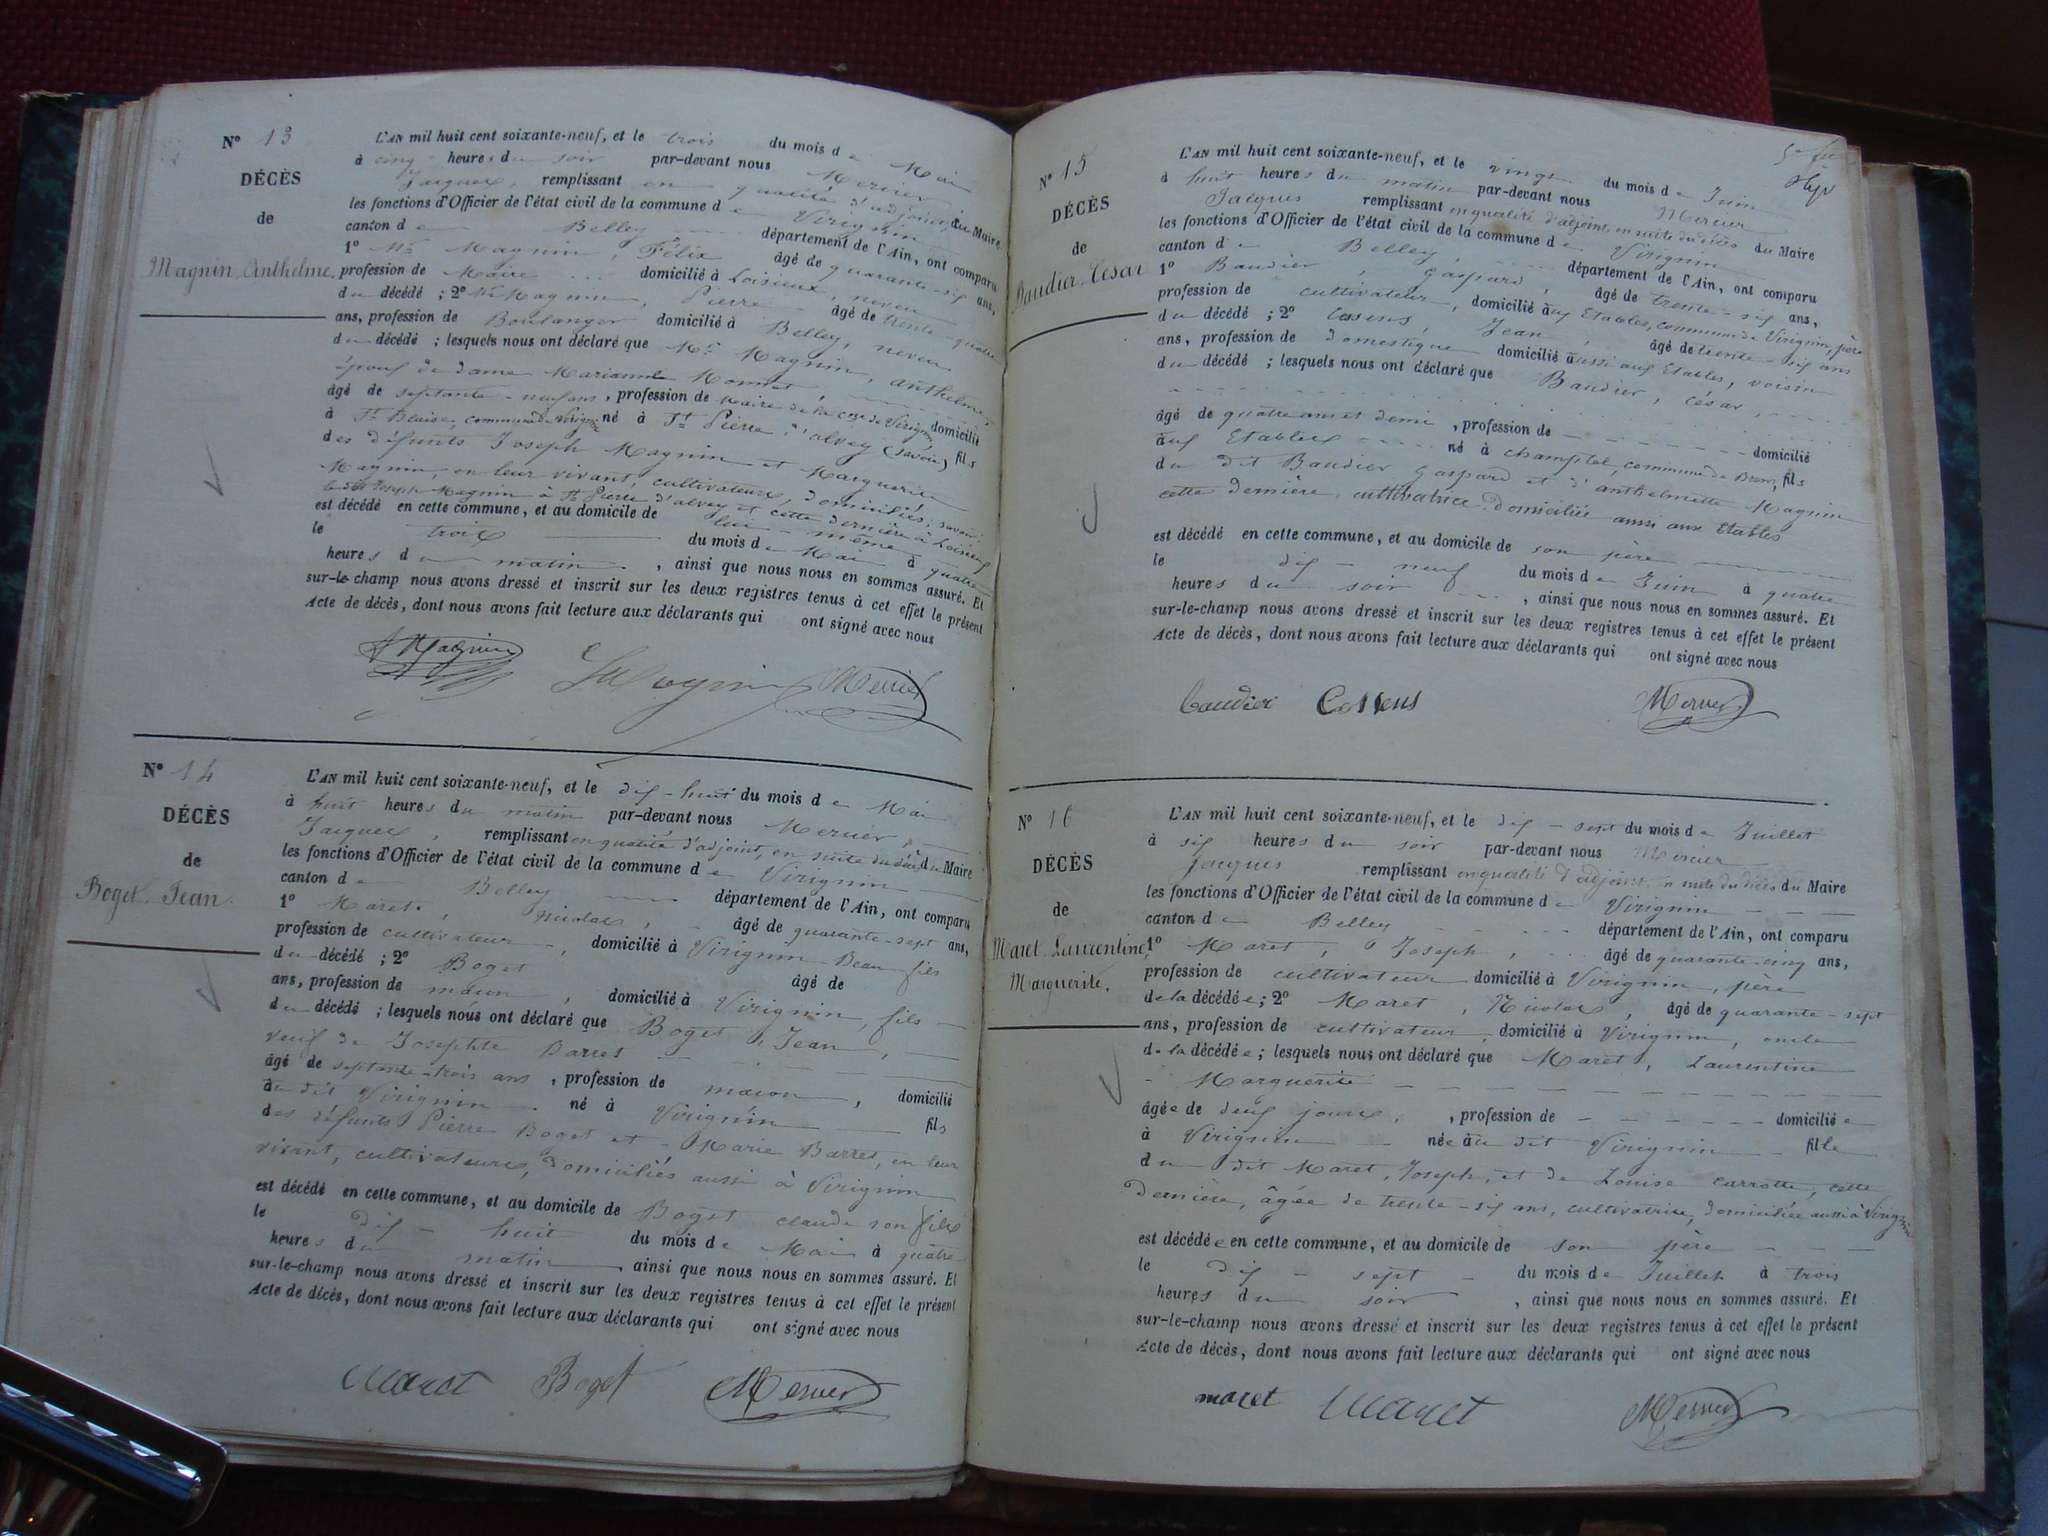 N° 13
DÉCÈS
de
Magnin, Anthelme.
L'AN mil huit cent soixante-neuf, et le trois du mois de Mai
à cinq heures du soir par-devant nous Mercier
Jacques, remplissant en qualité d'adjoint, du Maire
les fonctions d'Officier de l'état civil de la commune de Virignin
canton de Belley département de l'Ain, ont comparu
1° Mr Magnin, Félix âgé de quarante-six ans,
profession de Maire domicilié à Loisieux, neveu
du décédé ; 2° Mr Magnin, Pierre âgé de trente-quatre
ans, profession de Boulanger domicilié à Belley, neveu
du décédé ; lesquels nous ont déclaré que Mr Magnin, anthelme,
époux de dame Marianne Monnet
âgé de septante-neuf ans, profession de Maire de la cne de Virignin domicilié
à St Blaise, commune de Virignin né à St Pierre d'alvey (Savoie) fils
des défunts Joseph Magnin et Marguerite
Magnin, en leur vivant, cultivateurs, domiciliés ; savoir:
le dit Joseph Magnin à St Pierre d'alvey et cette dernière à Loisieux
est décédé en cette commune, et au domicile de lui-même
le trois du mois de Mai à quatre
heures du matin, ainsi que nous nous en sommes assuré. Et
sur-le-champ nous avons dressé et inscrit sur les deux registres tenus à cet effet le présent
Acte de décès, dont nous avons fait lecture aux déclarants qui ont signé avec nous
Magnin Magnin Mercier
N° 14
DÉCÈS
de
Boget, Jean.
L'AN mil huit cent soixante-neuf, et le dix-huit du mois de Mai
à huit heures du matin par-devant nous Mercier,
Jacques, remplissant en qualité d'adjoint, en suite du décès du Maire
les fonctions d'Officier de l'état civil de la commune de Virignin
canton de Belley département de l'Ain, ont comparu
1° Maret, Nicolas, âgé de quarante-sept ans,
profession de cultivateur, domicilié à Virignin Beau fils
du décédé ; 2° Boget âgé de
ans, profession de maçon, domicilié à Virignin, fils
du décédé ; lesquels nous ont déclaré que Boget, Jean,
veuf de Josephte Barret
âgé de septante-trois ans, profession de maçon, domicilié
au dit Virignin né à Virignin fils
des défunts Pierre Boget et Marie Barret, en leur
vivant, cultivateurs, domiciliés aussi à Virignin
est décédé en cette commune, et au domicile de Boget claude son fils
le dix-huit du mois de Mai à quatre
heures du matin, ainsi que nous nous en sommes assuré. Et
sur-le-champ nous avons dressé et inscrit sur les deux registres tenus à cet effet le présent
Acte de décès, dont nous avons fait lecture aux déclarants qui ont signé avec nous
Maret Boget Mercier
N° 15
DÉCÈS
de
Baudier, César
L'AN mil huit cent soixante-neuf, et le vingt du mois de Juin
à huit heures du matin par-devant nous Mercier
Jacques remplissant en qualité d'adjoint, en suite du décès du Maire
les fonctions d'Officier de l'état civil de la commune de Virignin
canton de Belley, département de l'Ain, ont comparu
1° Baudier, Gaspard, âgé de trente-six ans,
profession de cultivateur, domicilié aux Etables, commune de Virignin, père
du décédé ; 2° Cosens, Jean, âgé de trente-six ans
ans, profession de domestique domicilié aussi aux Etables, voisin
du décédé ; lesquels nous ont déclaré que Baudier, césar,
âgé de quatre ans et demi, profession de domicilié
aux Etables né à champtel, commune de Brens, fils
du dit Baudier Gaspard et d'anthelmette Magnin
cette dernière, cultivatrice, domiciliée aussi aux Etables
est décédé en cette commune, et au domicile de son père
le dix-neuf du mois de Juin à quatre
heures du soir, ainsi que nous nous en sommes assuré. Et
sur-le-champ nous avons dressé et inscrit sur les deux registres tenus à cet effet le présent
Acte de décès, dont nous avons fait lecture aux déclarants qui ont signé avec nous
baudier Cosens Mercier
N° 16
DÉCÈS
de
Maret, Laurentine,
Marguerite.
L'AN mil huit cent soixante-neuf, et le dix-sept du mois de Juillet
à six heures du soir par-devant nous Mercier
Jacques remplissant en qualité d'adjoint, en suite du décès du Maire
les fonctions d'Officier de l'état civil de la commune de Virignin
canton de Belley département de l'Ain, ont comparu
1° Maret, Joseph, âgé de quarante-cinq ans,
profession de cultivateur domicilié à Virignin, père
de la décédée ; 2° Maret, Nicolas, âgé de quarante-sept
ans, profession de cultivateur, domicilié à Virignin, oncle
de la décédée ; lesquels nous ont déclaré que Maret, Laurentine
Marguerite
âgée de deux jours, profession de domiciliée
à Virignin née au dit Virignin fille
du dit Maret, Joseph, et de Louise Carrotte, cette
dernière, âgée de trente-six ans, cultivatrice, domiciliée aussi à Virignin
est décédée en cette commune, et au domicile de son père
le dix-sept du mois de Juillet à trois
heures du soir, ainsi que nous nous en sommes assuré. Et
sur-le-champ nous avons dressé et inscrit sur les deux registres tenus à cet effet le présent
Acte de décès, dont nous avons fait lecture aux déclarants qui ont signé avec nous
maret Maret Mercier